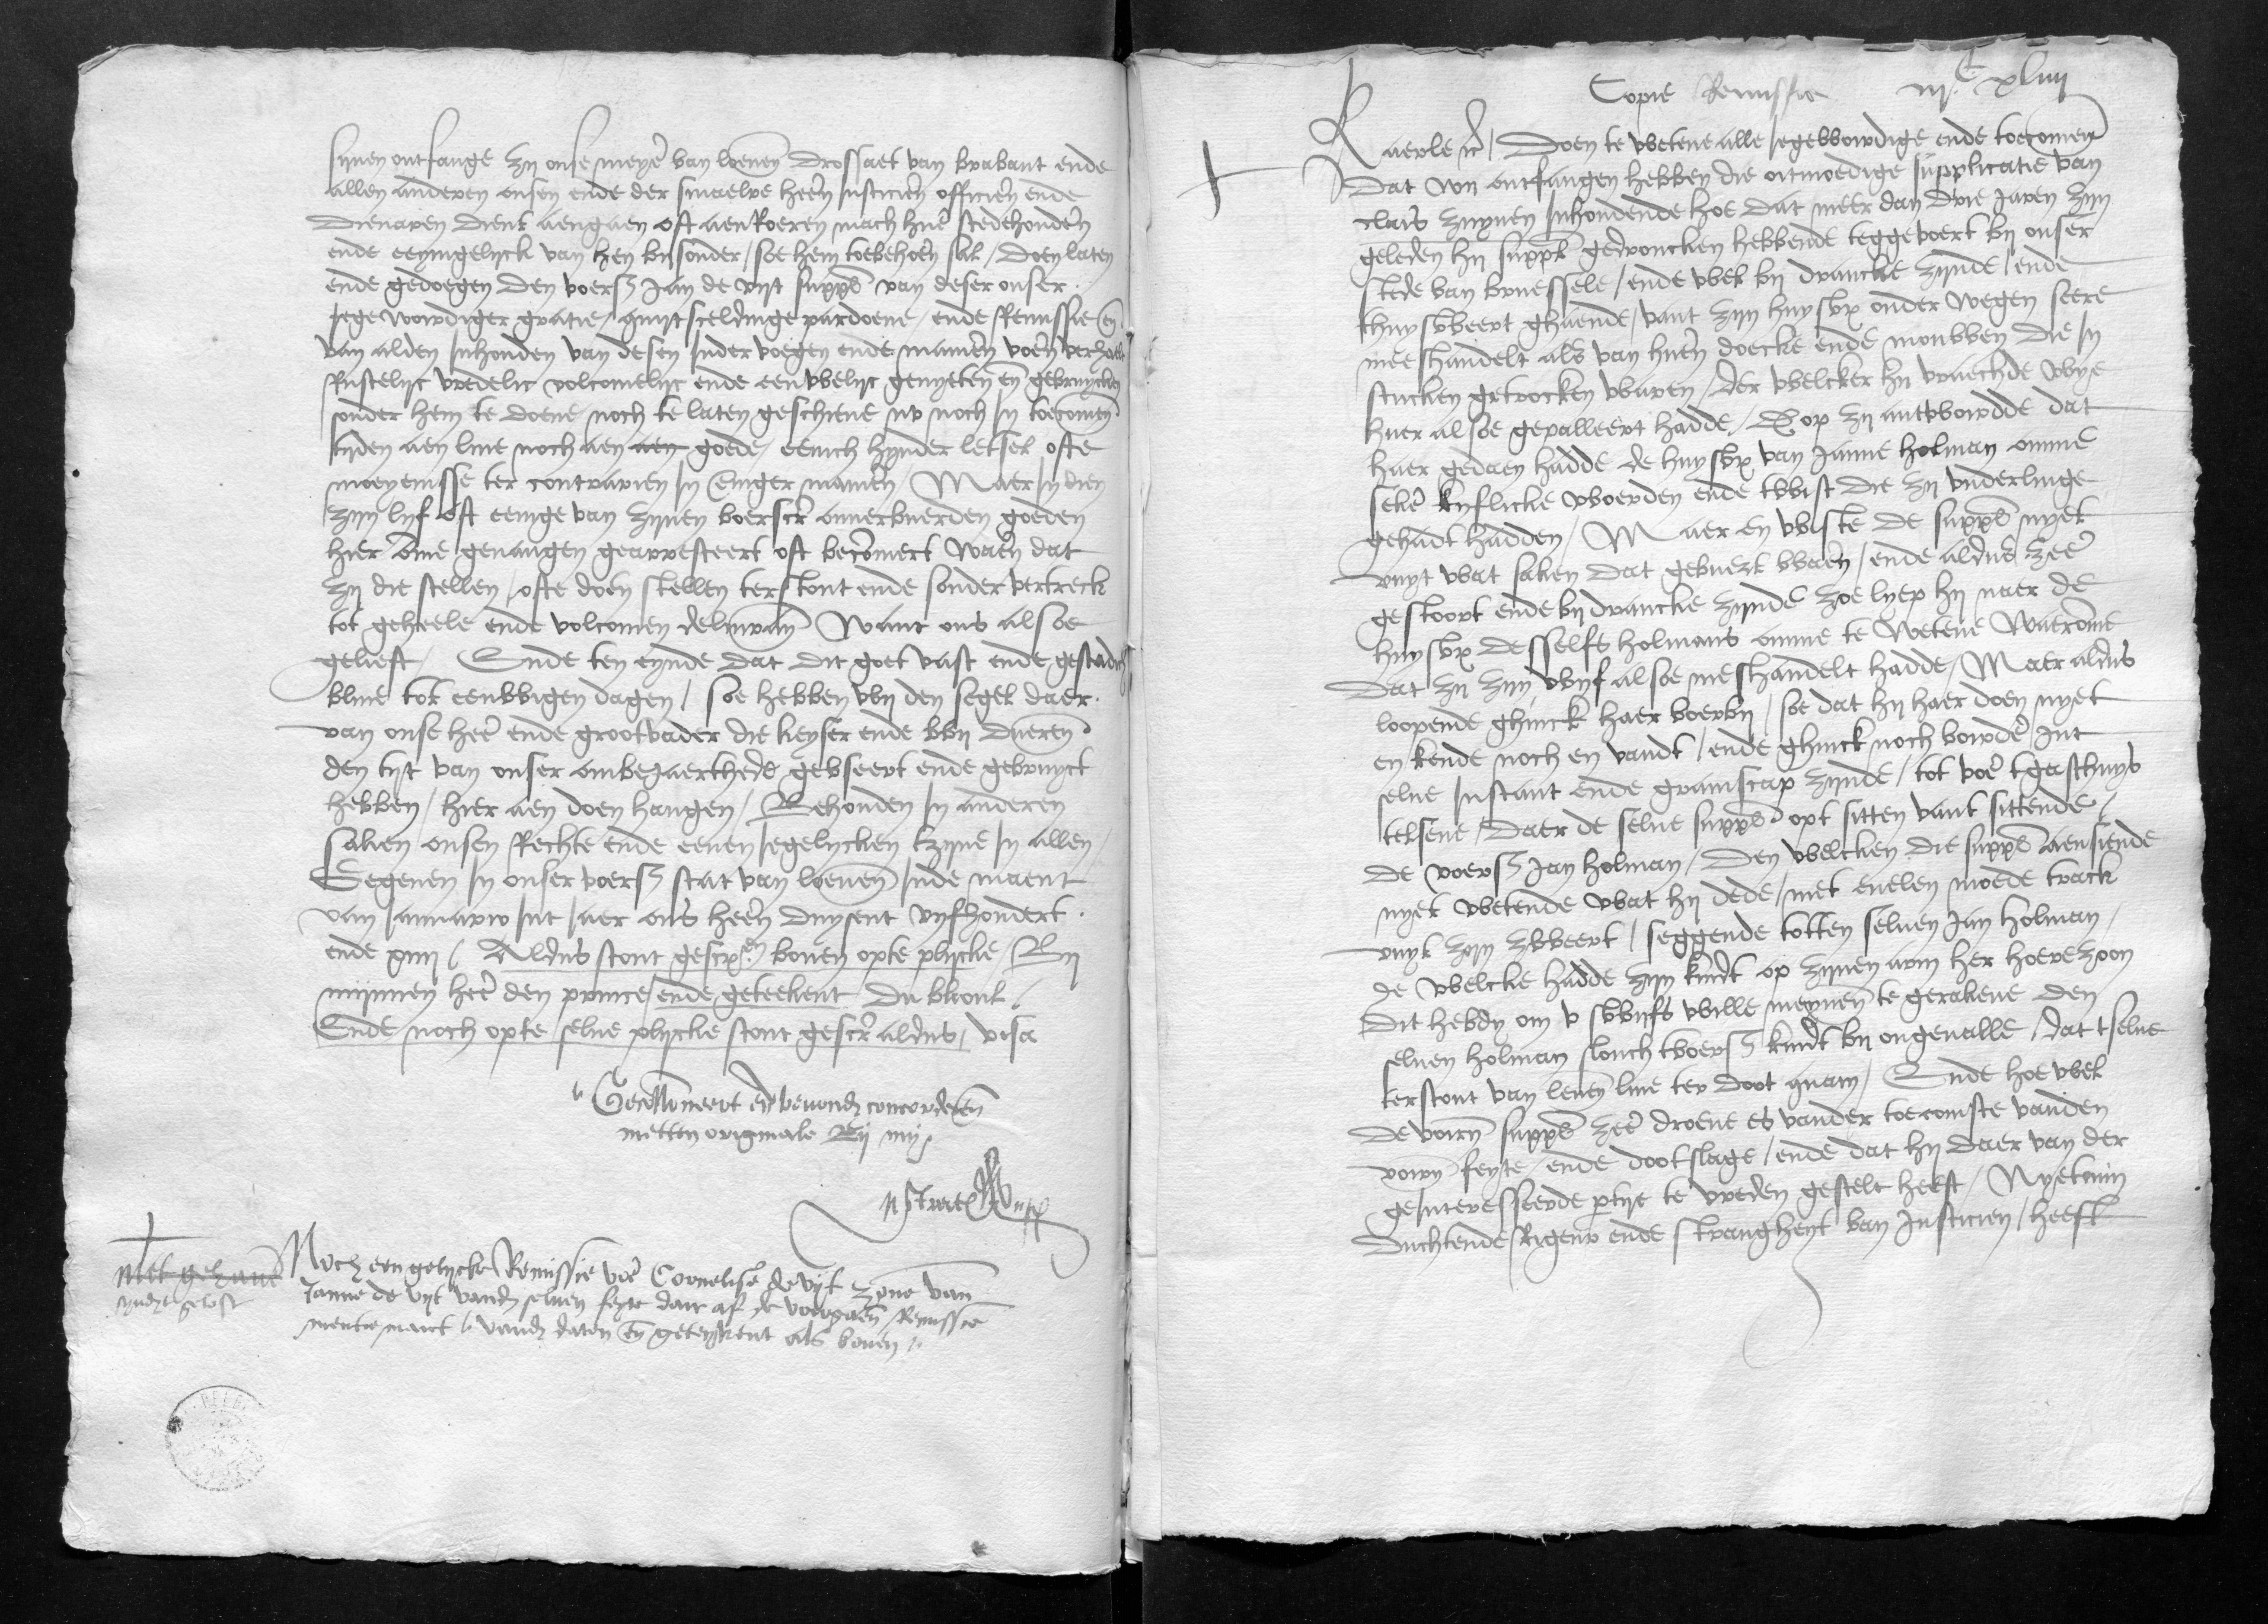 synen ontfange zy onse meyer van loenen drossaet van brabant ende
allen anderen onsen ende der smaelre heren Justicieren officieren ende
dienaren dient aengaen oft aenroeren mach huer stedehouderen
ende eenyngelyck van hen bysonder / soe hem toebehoren sal / doen laten
ende gedoegen den voers Jan de vyt supplt van deser onser
Jegewordiger gratie / quytsceldinge pardoene / ende Remissie en
van alden Inhouden van desen Inder voegen ende manieren voeren verhaelt
Rustelyc vredelic volcomelyc ende eeuwelyc genyeten en gebruycken
sonder hem te doene noch te laten geschiene nv noch In toecomen
tyden aen live noch aen aen goede / eenich hynder letsel ofte
moeyenisse ter contrarien In Eeniger manieren / Maer Indien
zyn lyf oft eenige van zynen voerscr onverbuerden goeden
hier ome gevangen gearresteert oft becomert waeren dat
zy die stellen / ofte doen stellen terstont ende sonder vertreck
tot geheele ende volcomen delivran Want ons alsoe
gelieft / Ende ten eynde dat dit goet vast ende gestadich
blive tot eeuwigen dagen / soe hebben wy den segel daer
van onse heer ende grootvader die keyser ende wy dueren
den tyt van onser ombejaerthede gebseert ende gebruyct
hebben / hier aen doen hangen / Behouden In anderen
saken onsen Rechte ende eenen Jegelycken tzyne In allen
Gegeven In onser voers stat van loevene Inde maent
van Januario Int Jaer ons heren duysent vyfhondert
ende xiiij / Aldus stont gescr boven opte plycke / By
mynnen heer den prince / ende geteekent Du blioul
Ende noch opte selve plycke stont gescr aldus / visa
Gecollationeert en bevonden concorderen
metten originale By my
Noch een gelycke Remissie voer Cornelise de vyt zone van
Janne de vyt vanden selven feyte dair af de voergaen Remissie
mentie maect / vanden daten en geteykent als boven
Copie Remissie iij.C xliiij
Kaerle etc / Doen te wetene alle Jegewordige ende toecomen
Dat wy ontfangen hebben die oitmoedige supplicatie van
claus zuynen Inhoudende hoe dat meer dan drie Jaren zyn
geleden hy supplt gedroncken hebbende teggevoert by onser
stede van bruessele / ende wel by drancke zynde / ende
thuyswaert ghaende / vant zyn huysvr onder wegen seere
mishandelt als van hueren doecke ende mouwen die In
stucken getrocken waren / der welcker hy vraechde wye
huer alsoe gepalleert hadde / Dop zy antworde dat
huer gedaen hadde de huysvr van Janne holman omme
seker kyflicke woorden ende twist die zy onderlinge
gehadt hadden / Maer en wiste de supplt nyet
vuyt wat saken dat gebuert waren / ende aldus zeer
gestoort ende by drancke zynde zoe lyep hy naer de
huysvr desselfs holmans omme te wetene waerome
dat zy zyn wyf alsoe mishandelt hadde / Maer aldus
loopende ghinck haer voerby / soe dat hy haer doen nyet
en kende noch en vandt / ende ghinck noch vorder Int
selve Instant ende gramscap zynde / tot voer tgasthuys
telsene / daer de selve supplt opt sitten vant sittende
de voers Jan holman / den welcken die supplt aensiende
nyet wetende wat hy dede / met evelen moede track
vuyt zyn zweert / seggende totten selven Jan holman
de welcke hadde zyn kindt op zynen arm her hoerezoon
dit hebdy om v swyfs wille meynen te gerakene den
selven holman slouch tvoers kindt by ongevalle / dat tselve
terstont van leven live ter doot quam / Ende hoe wel
de voirn supplt zeer droeve es vander toecomste vanden
voirn feyte / ende dootslage / ende dat hy daer van der
geInteresseerde ptye te vreden gestelt heeft / Nyetmin
duchtende Rigeur ende strangheyt van Justicien / heeft